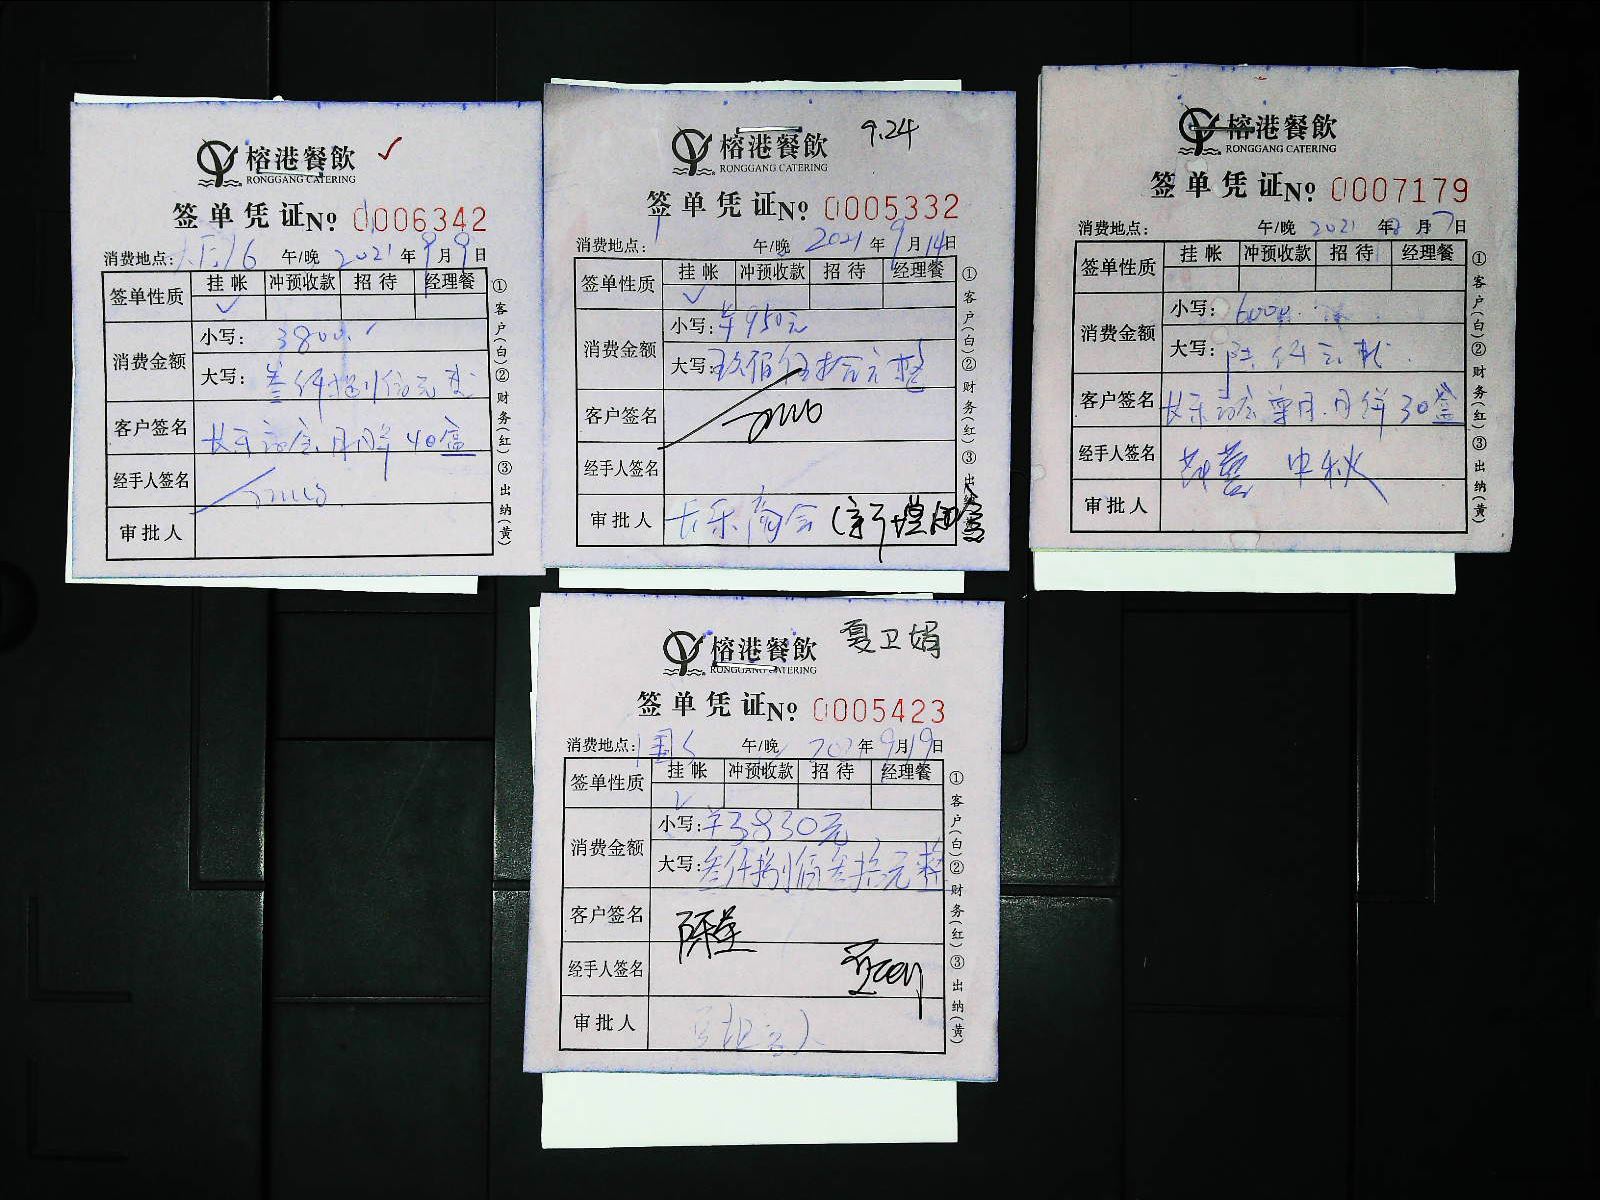 榕港餐飲 ✓
RONGGANG CATERING
签单凭证№ 0006342
消费地点: 午/晚 2021年9月9日
签单性质 挂帐 冲预收款 招待 经理餐
✓
消费金额 小写: 3800.
大写: 叁仟捌佰元整
客户签名 长乐商会月饼40盒
经手人签名
审批人
①客户(白)②财务(红)③出纳(黄)
榕港餐飲 9.24
RONGGANG CATERING
签单凭证№ 0005332
消费地点: 午/晚 2021年9月14日
签单性质 挂帐 冲预收款 招待 经理餐
✓
消费金额 小写: ¥950元
大写: 玖佰伍拾元整
客户签名
经手人签名
审批人 长乐商会(新增
①客户(白)②财务(红)③出纳(黄)
榕港餐飲
RONGGANG CATERING
签单凭证№ 0007179
消费地点: 午/晚 2021年8月7日
签单性质 挂帐 冲预收款 招待 经理餐
消费金额 小写: 6000.
大写: 陆仟元整
客户签名 月饼30盒
经手人签名 中秋
审批人
①客户(白)②财务(红)③出纳(黄)
榕港餐飲 夏卫娟
RONGGANG CATERING
签单凭证№ 0005423
消费地点: 午/晚 2021年9月19日
签单性质 挂帐 冲预收款 招待 经理餐
✓
消费金额 小写: ¥3830元
大写: 叁仟捌佰叁拾元整
客户签名
经手人签名
审批人
①客户(白)②财务(红)③出纳(黄)